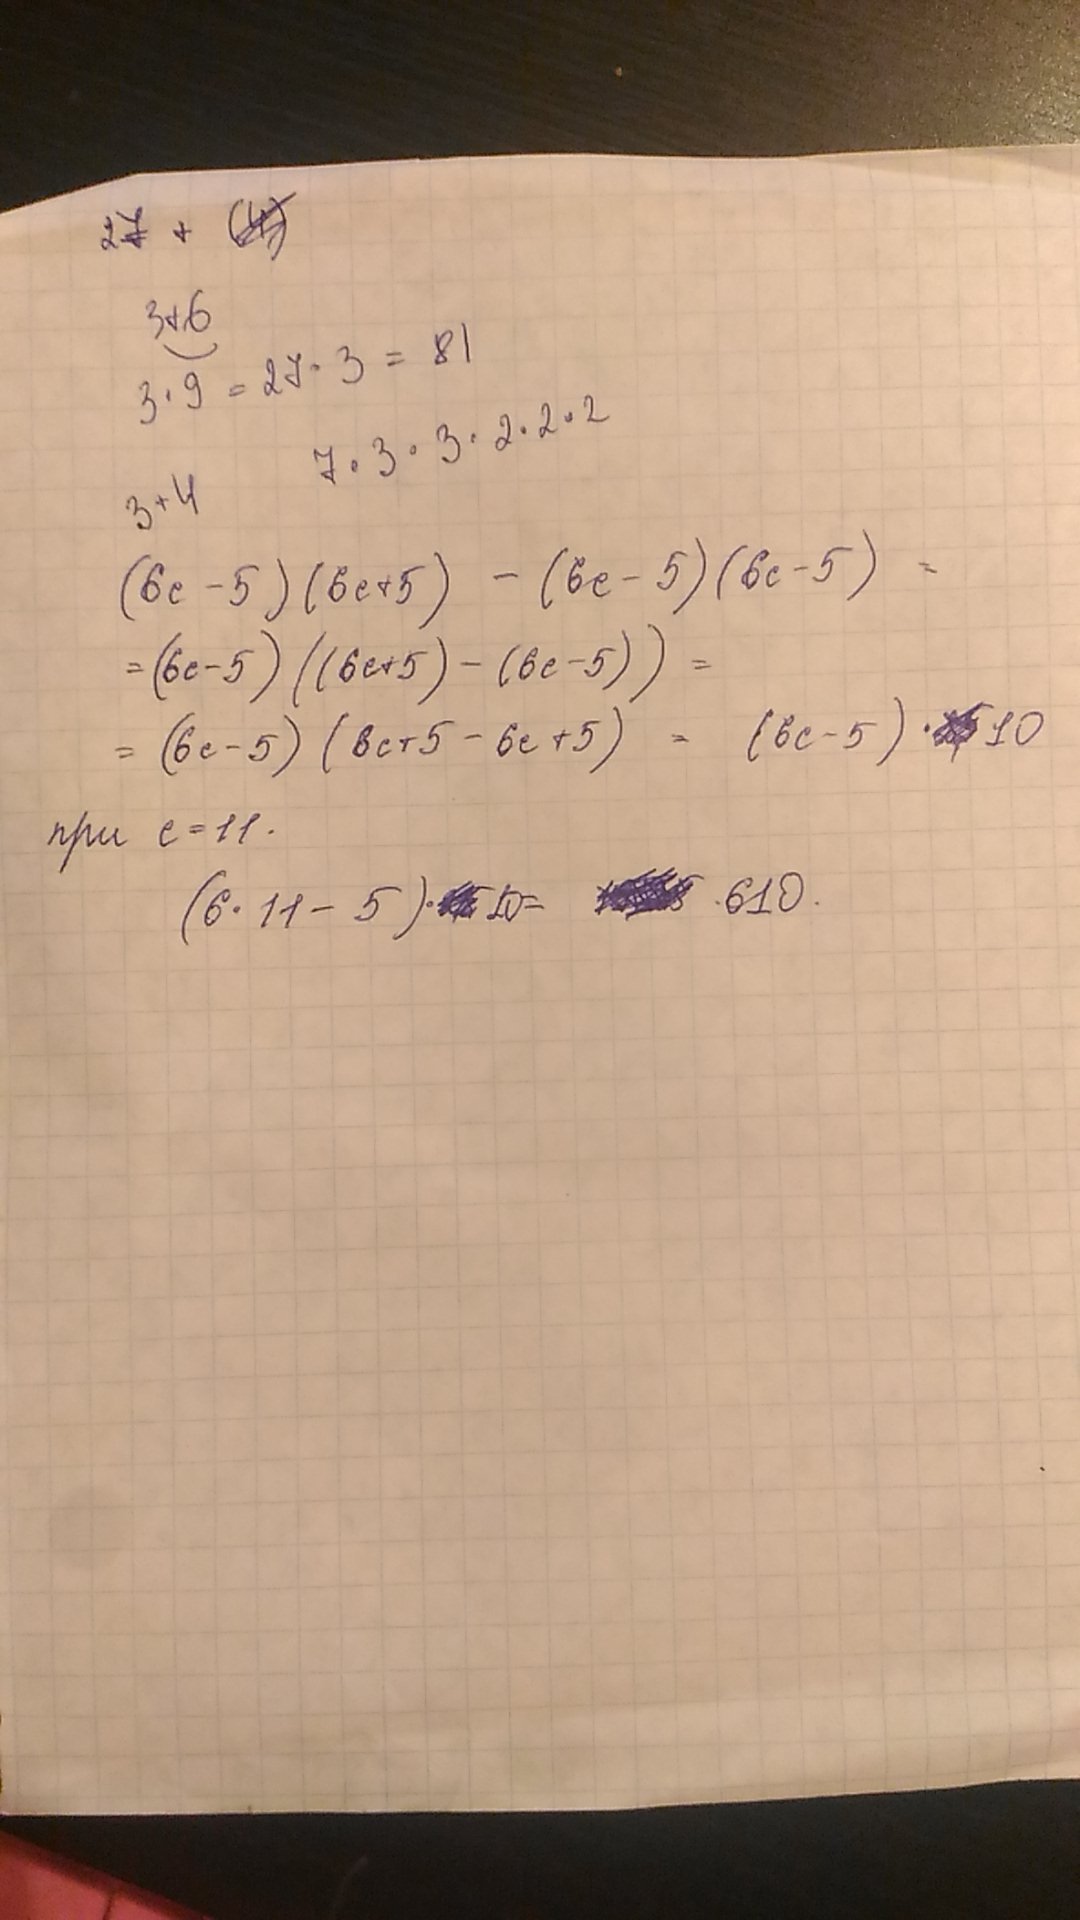 27 +
3+6
3·9 = 27·3 = 81
7·3·3·2·2·2
3+4
(6c-5)(6c+5) - (6c-5)(6c-5) =
=(6c-5)((6c+5)-(6c-5)) =
= (6c-5)(6c+5-6c+5) = (6c-5)·10
при c=11.
(6·11-5)·10= 610.